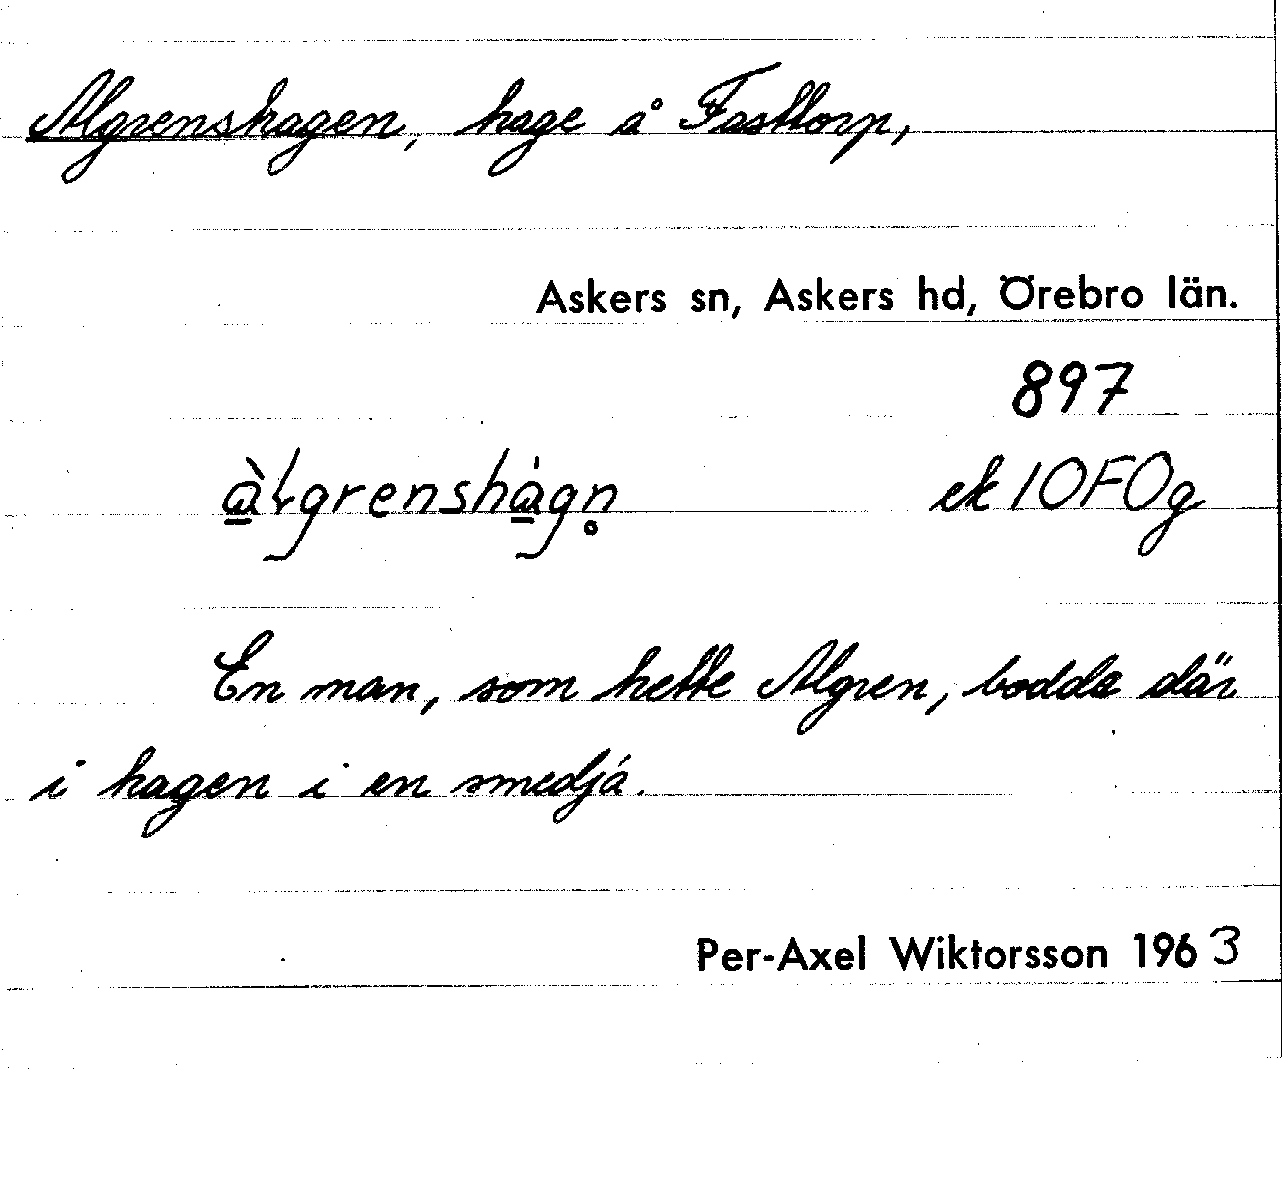 Algrenshagen, hage å Fasttorp,
Askers sn, Askers hd, Örebro län.
897
à̲lgrenshá̲gn̥
ek 10F0g
En man, som hette Algren, bodde där
i hagen i en smedja.
Per-Axel Wiktorsson 1963